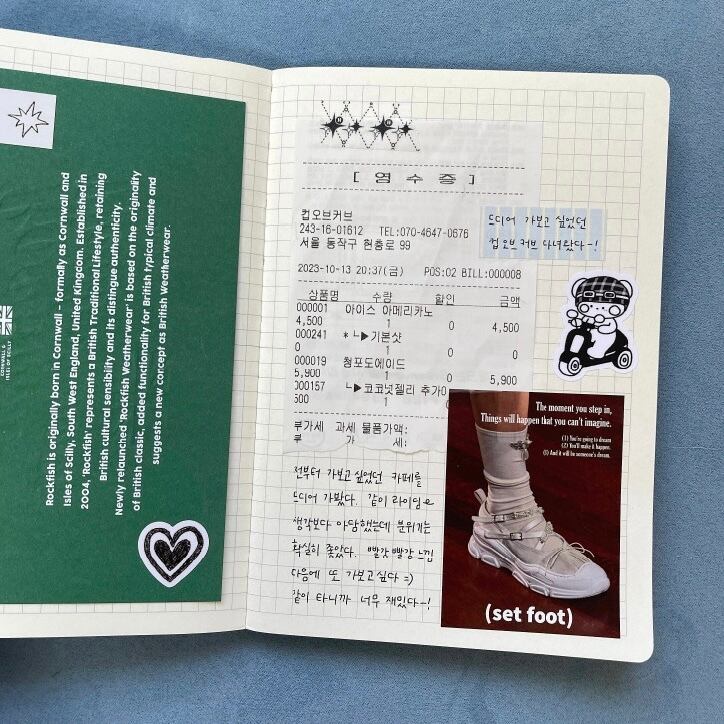 Rockfish is originally born in Cornwall - formally as Cornwall and
Isles of Scilly, South West England, United Kingdom. Established in
2004, 'Rockfish' represents a British Traditional Lifestyle, retaining
British cultural sensiblity and its distingue authenticity.
Newly relaunched 'Rockfish Weatherwear' is based on the originality
of British classic, added functionality for British typical climate and
suggests a new concept as British Weatherwear.
CORNWALL &
ISLES OF SCILLY
[ 영 수 증 ]
컵오브커브
243-16-01612 TEL:070-4647-0676
서울 동작구 현충로 99
2023-10-13 20:37(금) POS:02 BILL:000008
상품명 수량 할인 금액
000001 아이스 아메리카노
4,500 1 0 4,500
000241 *└▶기본샷
0 1 0
000019 청포도에이드
5,900 1 0 5,900
000157 └▶코코넛젤리 추가
500 1 0
부가세 과세 물품가액:
부 가 세:
드디어 가보고 싶었던
컵 오브 커브 다녀왔다~!
전부터 가보고 싶었던 카페를
드디어 가봤다. 같이 라이딩
생각보다 아담했는데 분위기는
확실히 좋았다. 빨강 빨강 느낌
다음에 또 가보고싶다 =)
같이 타니까 너무 재밌다~!
The moment you step in,
Things will happen that you can't imagine.
(1) You're going to dream
(2) You'll make it happen.
(3) And it will be someone's dream.
(set foot)